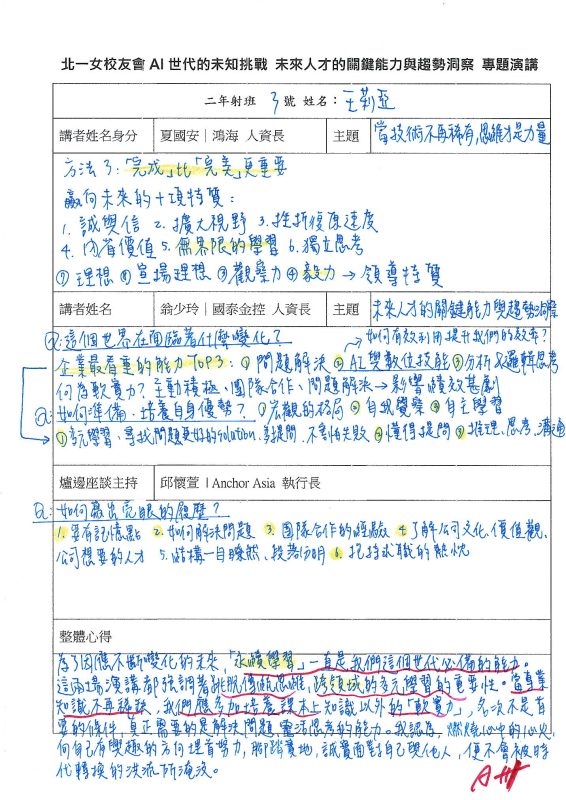 北一女校友會 AI 世代的未知挑戰 未來人才的關鍵能力與趨勢洞察 專題演講
二年射班 3 號 姓名： 王莉亞
講者姓名身分 夏國安｜鴻海 人資長 主題 當技術不再稀有,思維才是力量
方法3:「完成」比「完美」更重要
贏向未來的十項特質:
1. 誠與信 2. 擴大視野 3. 挫折復原速度
4. 內省價值 5. 無界限的學習 6. 獨立思考
⑦ 理想 ⑧ 宣揚理想 ⑨ 觀察力 ⑩ 毅力 → 領導特質
講者姓名 翁少玲｜國泰金控 人資長 主題 未來人才的關鍵能力與趨勢洞察
Q:這個世界在面臨著什麼變化? 如何有效利用提升我們的效率?
企業最看重的能力TOP3: ① 問題解決 ② AI與數位技能 ③ 分析及邏輯思考
何為軟實力? 主動積極、團隊合作、問題解決→影響績效甚劇
Q:如何準備、培養自身優勢? ① 宏觀的格局 ② 自我覺察 ③ 自主學習
① 多元學習、尋找問題更好的solution、多提問、不害怕失敗 ② 懂得提問 ③ 推理、思考、溝通
爐邊座談主持 邱懷萱｜Anchor Asia 執行長
Q:如何寫出亮眼的履歷?
1. 要有記憶點 2. 如何解決問題 3. 團隊合作的經驗 4. 了解公司文化、價值觀、
公司想要的人才 5. 結構一目瞭然、段落分明 6. 把持求職的熱忱
整體心得
為了因應不斷變化的未來,「永續學習」一直是我們這個世代必備的能力。
這兩場演講都強調著跳脫傳統思維,跨領域的多元學習的重要性。當專業
知識不再稀缺,我們應多加培養課本上知識以外的「軟實力」,名次不是首
要的條件,真正需要的是解決問題、靈活思考的能力。我認為,燃燒心中的心火,
向自己有興趣的方向埋首努力,腳踏實地,誠實面對自己與他人,便不會被時
代轉換的洪流所淹沒。
A++